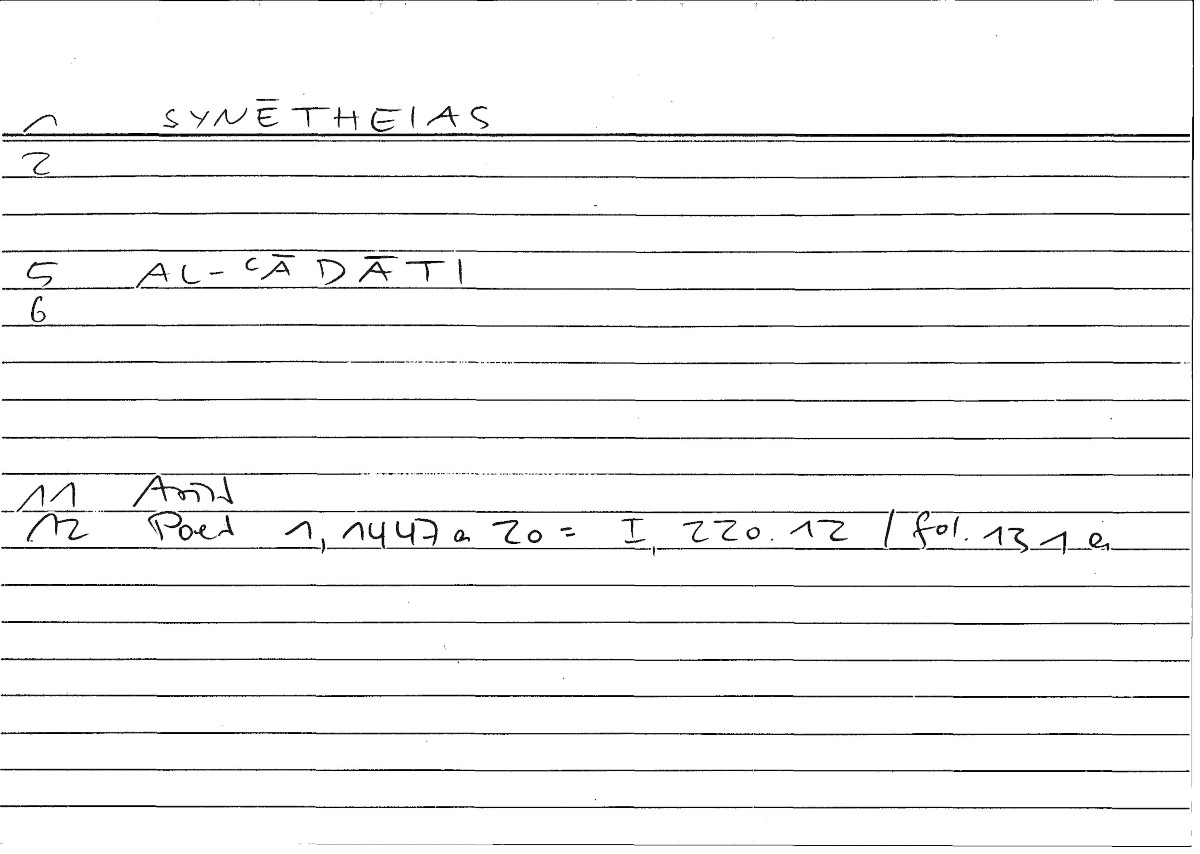 1 SYNĒTHEIAS
2
5 AL-ʿĀDĀTI
6
11
12 Poet 1, 1447 a 20 = I, 220.12 / fol. 131 a